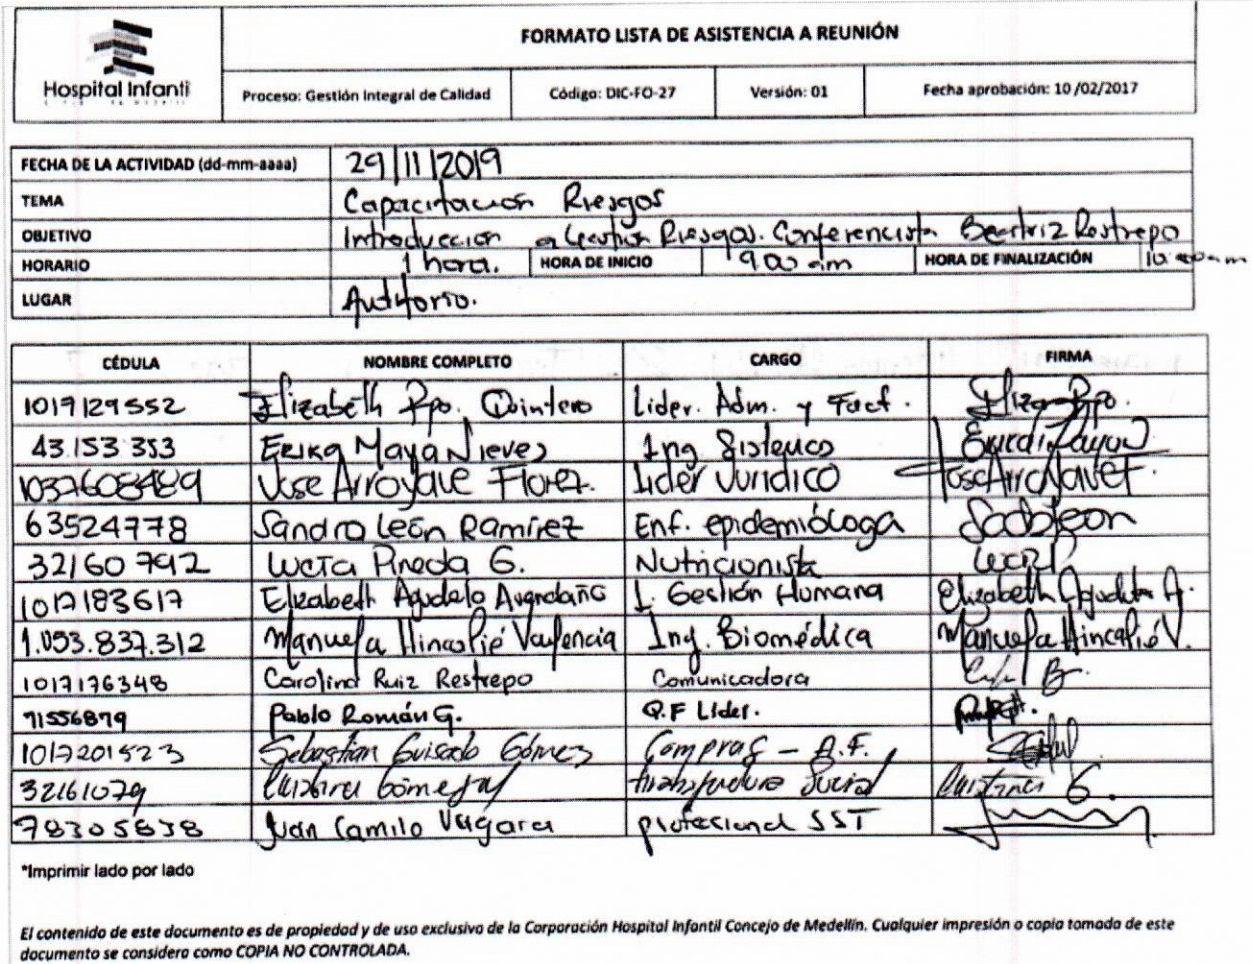 FORMATO LISTA DE ASISTENCIA A REUNIÓN
Hospital Infantil
Proceso: Gestión Integral de Calidad Código: DIC-FO-27 Versión: 01 Fecha aprobación: 10/02/2017
FECHA DE LA ACTIVIDAD (dd-mm-aaaa) 29/11/2019
TEMA Capacitación Riesgos
OBJETIVO Introduccion a Gestion Riesgos. Conferencista Beatriz Restrepo
HORARIO 1 hora. HORA DE INICIO 9:00 am HORA DE FINALIZACIÓN 10:00 am
LUGAR Auditorio.
CÉDULA NOMBRE COMPLETO CARGO FIRMA
1017129552 Elizabeth Rpo. Quintero Lider. Adm. y Fact. Eliza Rpo.
43.153.353 Erika Maya Nieves Ing Sistemas Erika Maya
1037608489 Jose Arroyave Florez. Lider Juridico Jose Arroyave F.
63524778 Sandra León Ramírez Enf. epidemióloga
32160792 Lucía Pineda G. Nutricionista
1017183617 Elizabeth Agudelo Avendaño L. Gestión Humana Elizabeth Agudelo A.
1.053.837.312 Manuela Hincapié Valencia Ing. Biomédica Manuela Hincapié V.
1017176348 Carolina Ruiz Restrepo Comunicadora
71556879 Pablo Román G. Q.F Lider.
1017201523 Sebastian Guisado Gómez Compras - A.F.
32161079 Social G.
78305638 Juan Camilo Vergara profesional SST
*Imprimir lado por lado
El contenido de este documento es de propiedad y de uso exclusivo de la Corporación Hospital Infantil Concejo de Medellín. Cualquier impresión o copia tomada de este
documento se considera como COPIA NO CONTROLADA.